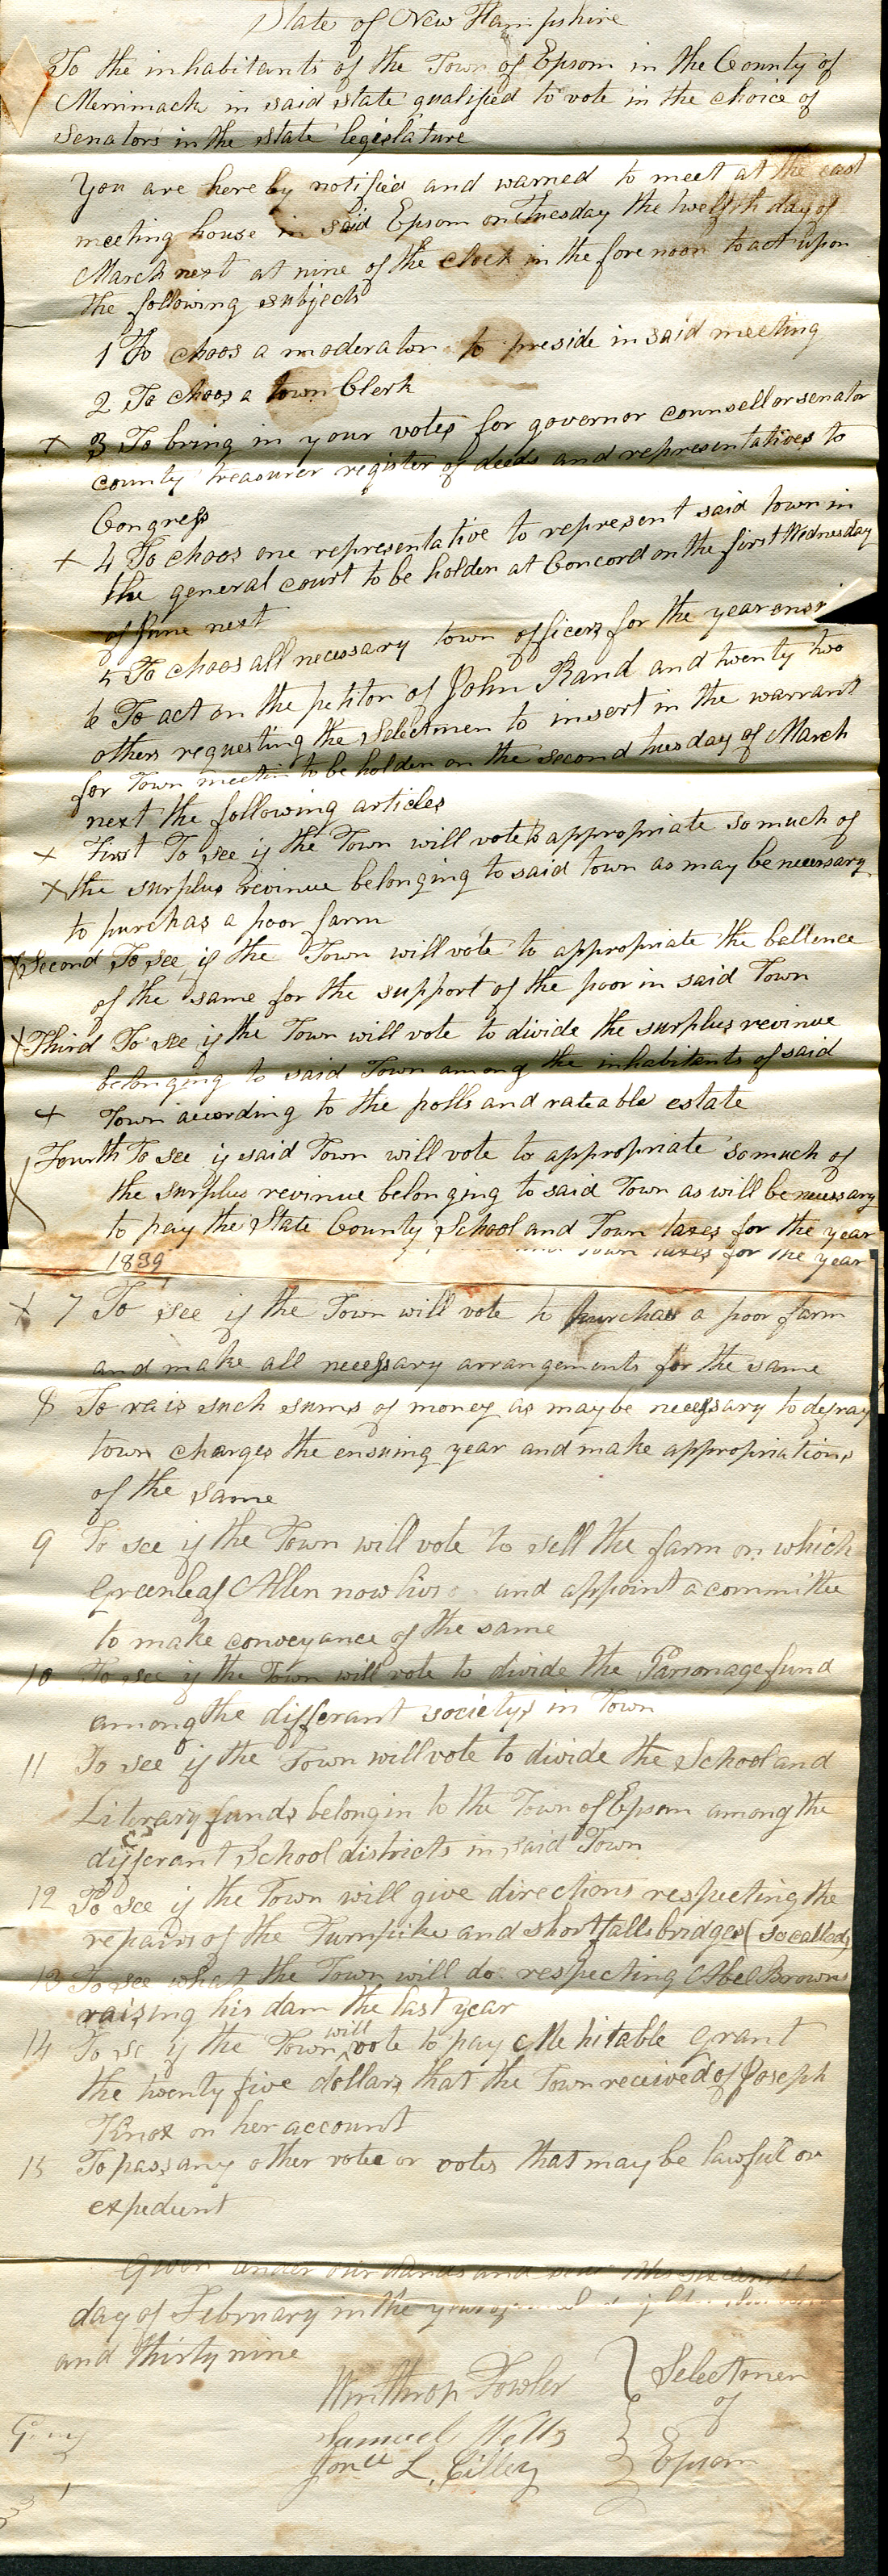 State of New Hampshire
To the inhabitants of the Town of Epsom in the County of
Merrimack in said state qualified to vote in the choice of
senators in the state legislature
You are here by notified and warned to meet at the east
meeting house in said Epsom on Tuesday the twelfth day of
March next at nine of the clock in the fore noon to act upon
the following subjects
1 To choos a moderator to preside in said meeting
2 To choos a town Clerk
+ 3 To bring in your votes for governor counsellor senator
county treasurer register of deeds and representatives to
Congress
+ 4 To choos one representative to represent said town in
the general court to be holden at Concord on the first Wednesday
of June next
5 To choos all necessary town officers for the year
6 To act on the petiton of John Rand and twenty two
others requesting the selectmen to insert in the warrant
for Town meetin to be holden on the second tuesday of March
next the following articles
+ First To see if the Town will vote to appropriate so much of
+ the surplus revinue belonging to said town as may be necessary
to purchas a poor farm
+ Second To see if the Town will vote to appropriate the bellence
of the same for the support of the poor in said Town
+ Third To see if the Town will vote to divide the surplus revinue
belonging to said Town among the inhabitants of said
+ Town according to the polls and rateable estate
+ Fourth To see if said Town will vote to appropriate so much of
the surplus revinue belonging to said Town as will be necessary
to pay the State County School and Town taxes for the year
Town taxes for the year
1839
+ 7 To see if the Town will vote to purchas a poor farm
and make all necessary arrangements for the same
8 To rais such sums of money as may be necessary to defray
town charges the ensuing year and make appropriations
of the same
9 To see if the Town will vote to sell the farm on which
Greenleaf Allen now and appoint a committee
to make conveyance of the same
10 To see if the Town will vote to divide the Parsonage fund
among the differant societys in Town
11 To see if the Town will vote to divide the School and
Literary funds belongin to the Town of Epsom among the
differant School districts in said Town
12 To see if the Town will give directions respecting the
repairs of the Turnpike and short falls bridges (so called)
13 To see what the Town will do respecting Abel Browns
raising his dam the last year
14 To se if the Town will vote to pay Mehitable Grant
the twenty five dollars that the Town received of Joseph
Knox on her account
15 To pass any other vote or votes that may be lawful or
expedient
Given under our hands and
day of February in the year of
and thirty nine
Winthrop Fowler } Selectmen
Samuel Wells } of
Jona L. Cilley } Epsom